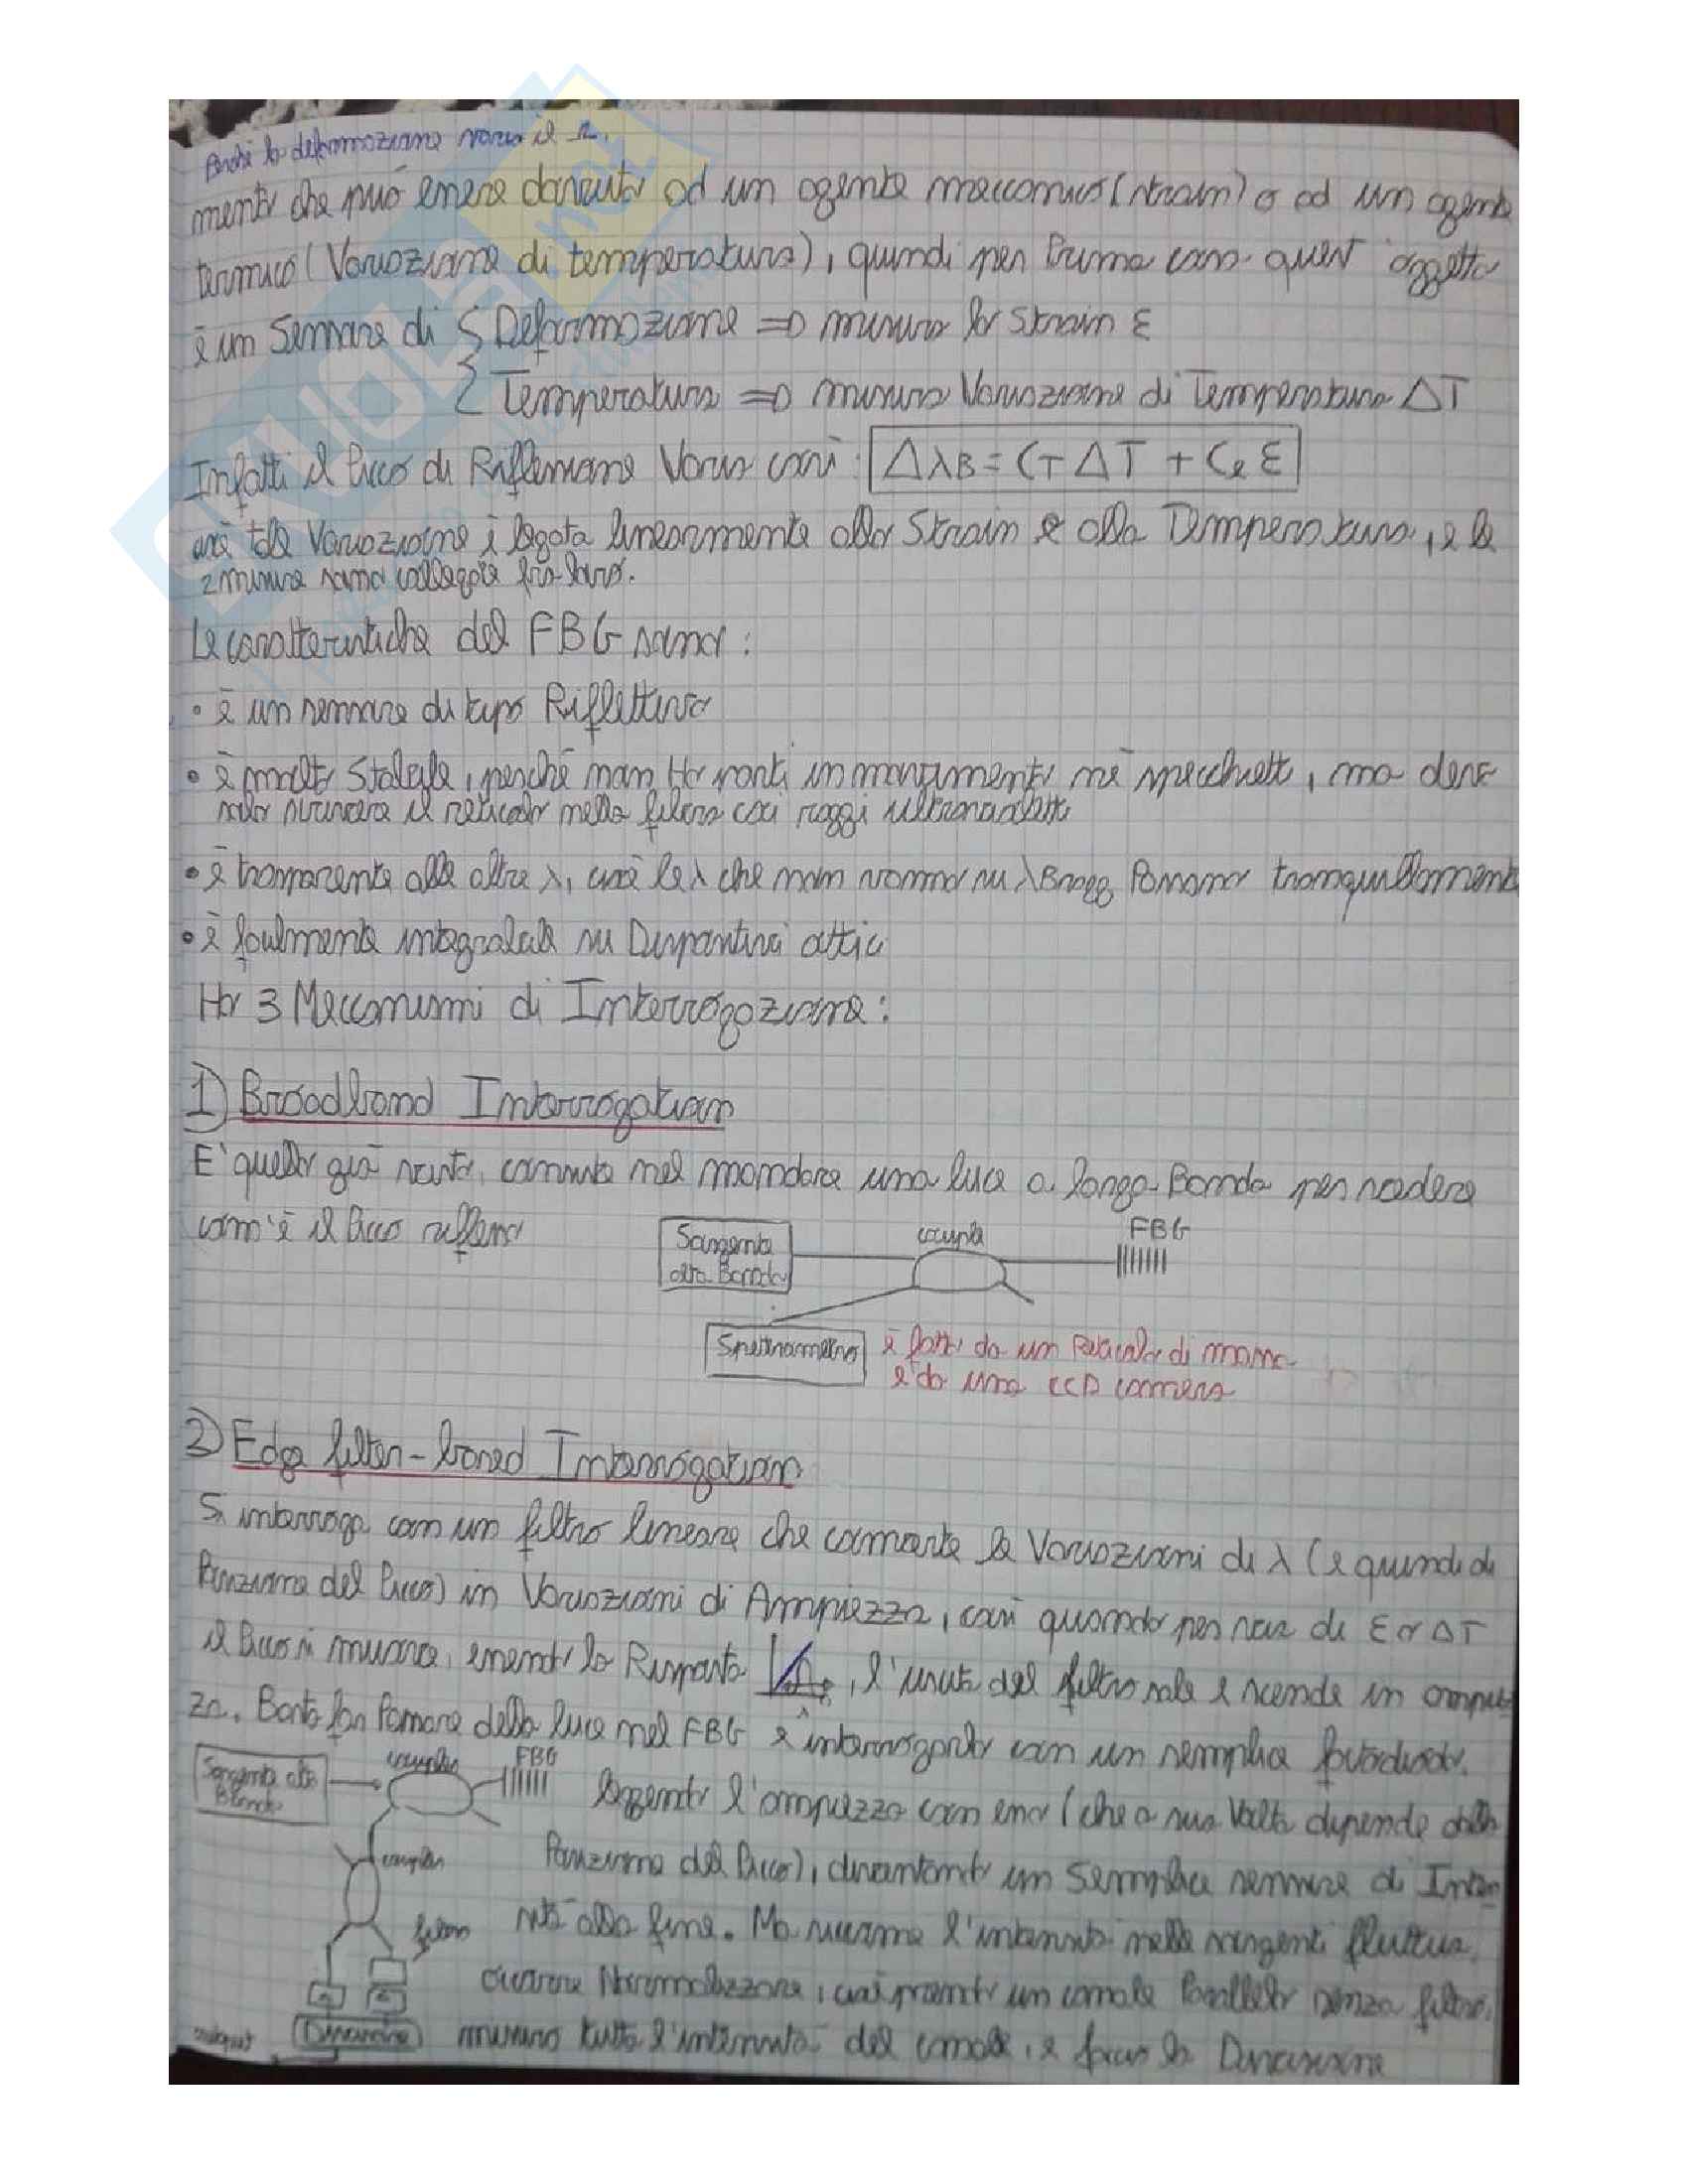 Perché la deformazione varia il n.
mento che può essere dovuto ad un agente meccanico (strain) o ad un agente
termico (Variazione di temperatura), quindi per Prima cosa quest'oggetto
è un Sensore di { Deformazione => misura lo Strain ε
{ Temperatura => misura Variazione di Temperatura ΔT
Infatti il Picco di Riflessione Varia così: ΔλB = CT ΔT + Cε ε
cioè tale Variazione è legata linearmente allo Strain e alla Temperatura, e le
2 misure sono collegate fra loro.
Le caratteristiche del FBG sono:
• è un sensore di tipo Riflettivo
• è molto Stabile, perché non Ho parti in movimento né specchietti, ma devo
solo scrivere il reticolo nella fibra coi raggi ultravioletti
• è trasparente alle altre λ, cioè le λ che non vanno su λBragg Passano tranquillamente
• è facilmente integrabile su Dispositivi ottici
Ho 3 Meccanismi di Interrogazione:
1) Broadband Interrogation
E' quello già visto, consiste nel mandare una luce a larga Banda per vedere
com'è il Picco riflesso
Sorgente alta Banda
coupler
FBG
Spettrometro
è fatto da un Reticolo di
e da una CCD camera
2) Edge filter-based Interrogation
Si interroga con un filtro lineare che converte le Variazioni di λ (e quindi di
Posizione del Picco) in Variazioni di Ampiezza, così quando per via di ε o ΔT
il Picco si muove, essendo la Risposta , l'uscita del filtro sale e scende in ampiez
za. Basta far Passare della luce nel FBG e interrogarlo con un semplice fotodiodo,
Sorgente alta Banda
coupler
FBG
leggendo l'ampiezza con esso (che a sua Volta dipende dalla
coupler
Posizione del Picco), diventando un Semplice sensore di Inten
filtro
sità alla fine. Ma siccome l'intensità nelle sorgenti fluttua,
occorre Normalizzare, così prendo un canale Parallelo senza filtro,
Divisione
misuro tutta l'intensità del canale, e faccio la Divisione